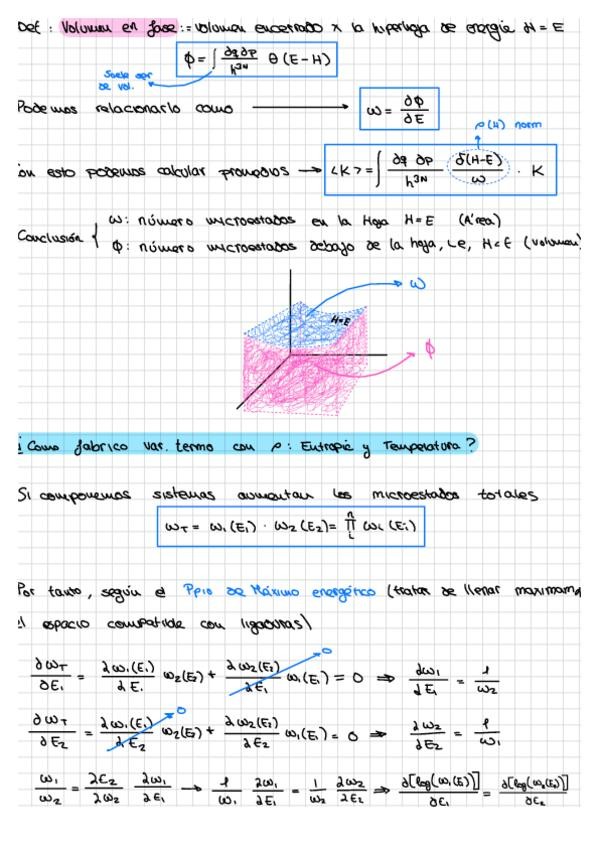 Def: Volumen en fase := volumen encerrado x la hiperhoja de energía H = E
ϕ = ∫ ∂q∂p / h^3N θ(E-H)
Suele ser
de vol.
Podemos relacionarlo como → ω = ∂ϕ/∂E
ρ(H) norm
on esto podemos calcular promedios → <K> = ∫ ∂q ∂p / h^3N δ(H-E)/ω · K
ω: número microestados en la Hoja H=E (Área)
Conclusión {
ϕ: número microestados debajo de la hoja, i.e, H<E (volumen)
ω
H=E
ϕ
¿Como fabrico var. termo con ρ: Entropía y Temperatura?
Si componemos sistemas aumentan los microestados totales
ω_T = ω_1(E_1) · ω_2(E_2) = ∏_i^n ω_i(E_i)
Por tanto, según el Ppio de Máximo energético (tratar de llenar maximam
el espacio compatible con ligaduras)
∂ω_T/∂E_1 = ∂ω_1(E_1)/∂E_1 ω_2(E_2) + ∂ω_2(E_2)/∂E_1 ω_1(E_1) = 0 ⇒ ∂ω_1/∂E_1 = 1/ω_2
0
∂ω_T/∂E_2 = ∂ω_1(E_1)/∂E_2 ω_2(E_2) + ∂ω_2(E_2)/∂E_2 ω_1(E_1) = 0 ⇒ ∂ω_2/∂E_2 = 1/ω_1
0
ω_1/ω_2 = ∂E_2/∂ω_2 ∂ω_1/∂E_1 → 1/ω_1 ∂ω_1/∂E_1 = 1/ω_2 ∂ω_2/∂E_2 ⇒ ∂[log(ω_1(E_1))]/∂E_1 = ∂[log(ω_2(E_2))]/∂E_2